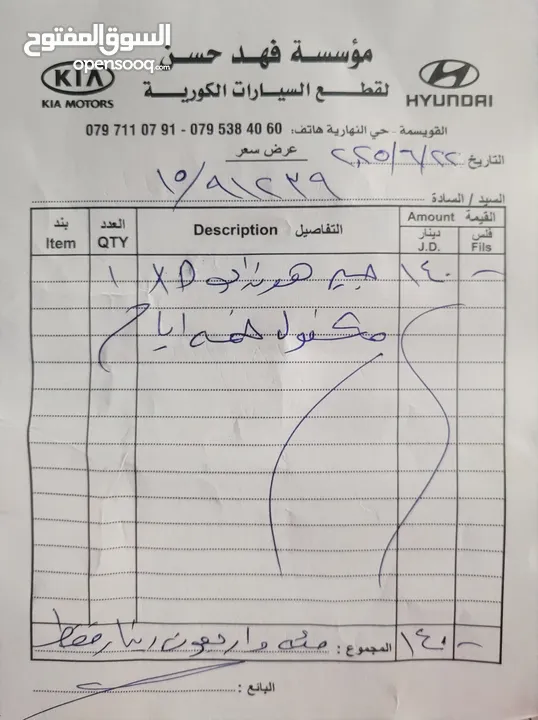 السوق المفتوح
opensooq.com
مؤسسة فهد حسن
لقطع السيارات الكورية
KIA
KIA MOTORS
HYUNDAI
القويسمة - حي النهارية هاتف: 60 40 538 079 - 91 07 711 079
عرض سعر
التاريخ ٢٠٢٥/٦/٢٢
السيد / السادة ١٥/٩١٢٣٩
بند العدد التفاصيل Description القيمة Amount
Item QTY دينار فلس
J.D. Fils
١ جير هونداي XD ١٤٠ -
مكفول خمسه ايام
المجموع : مئه واربعون دينار فقط ١٤٠ -
البائع :